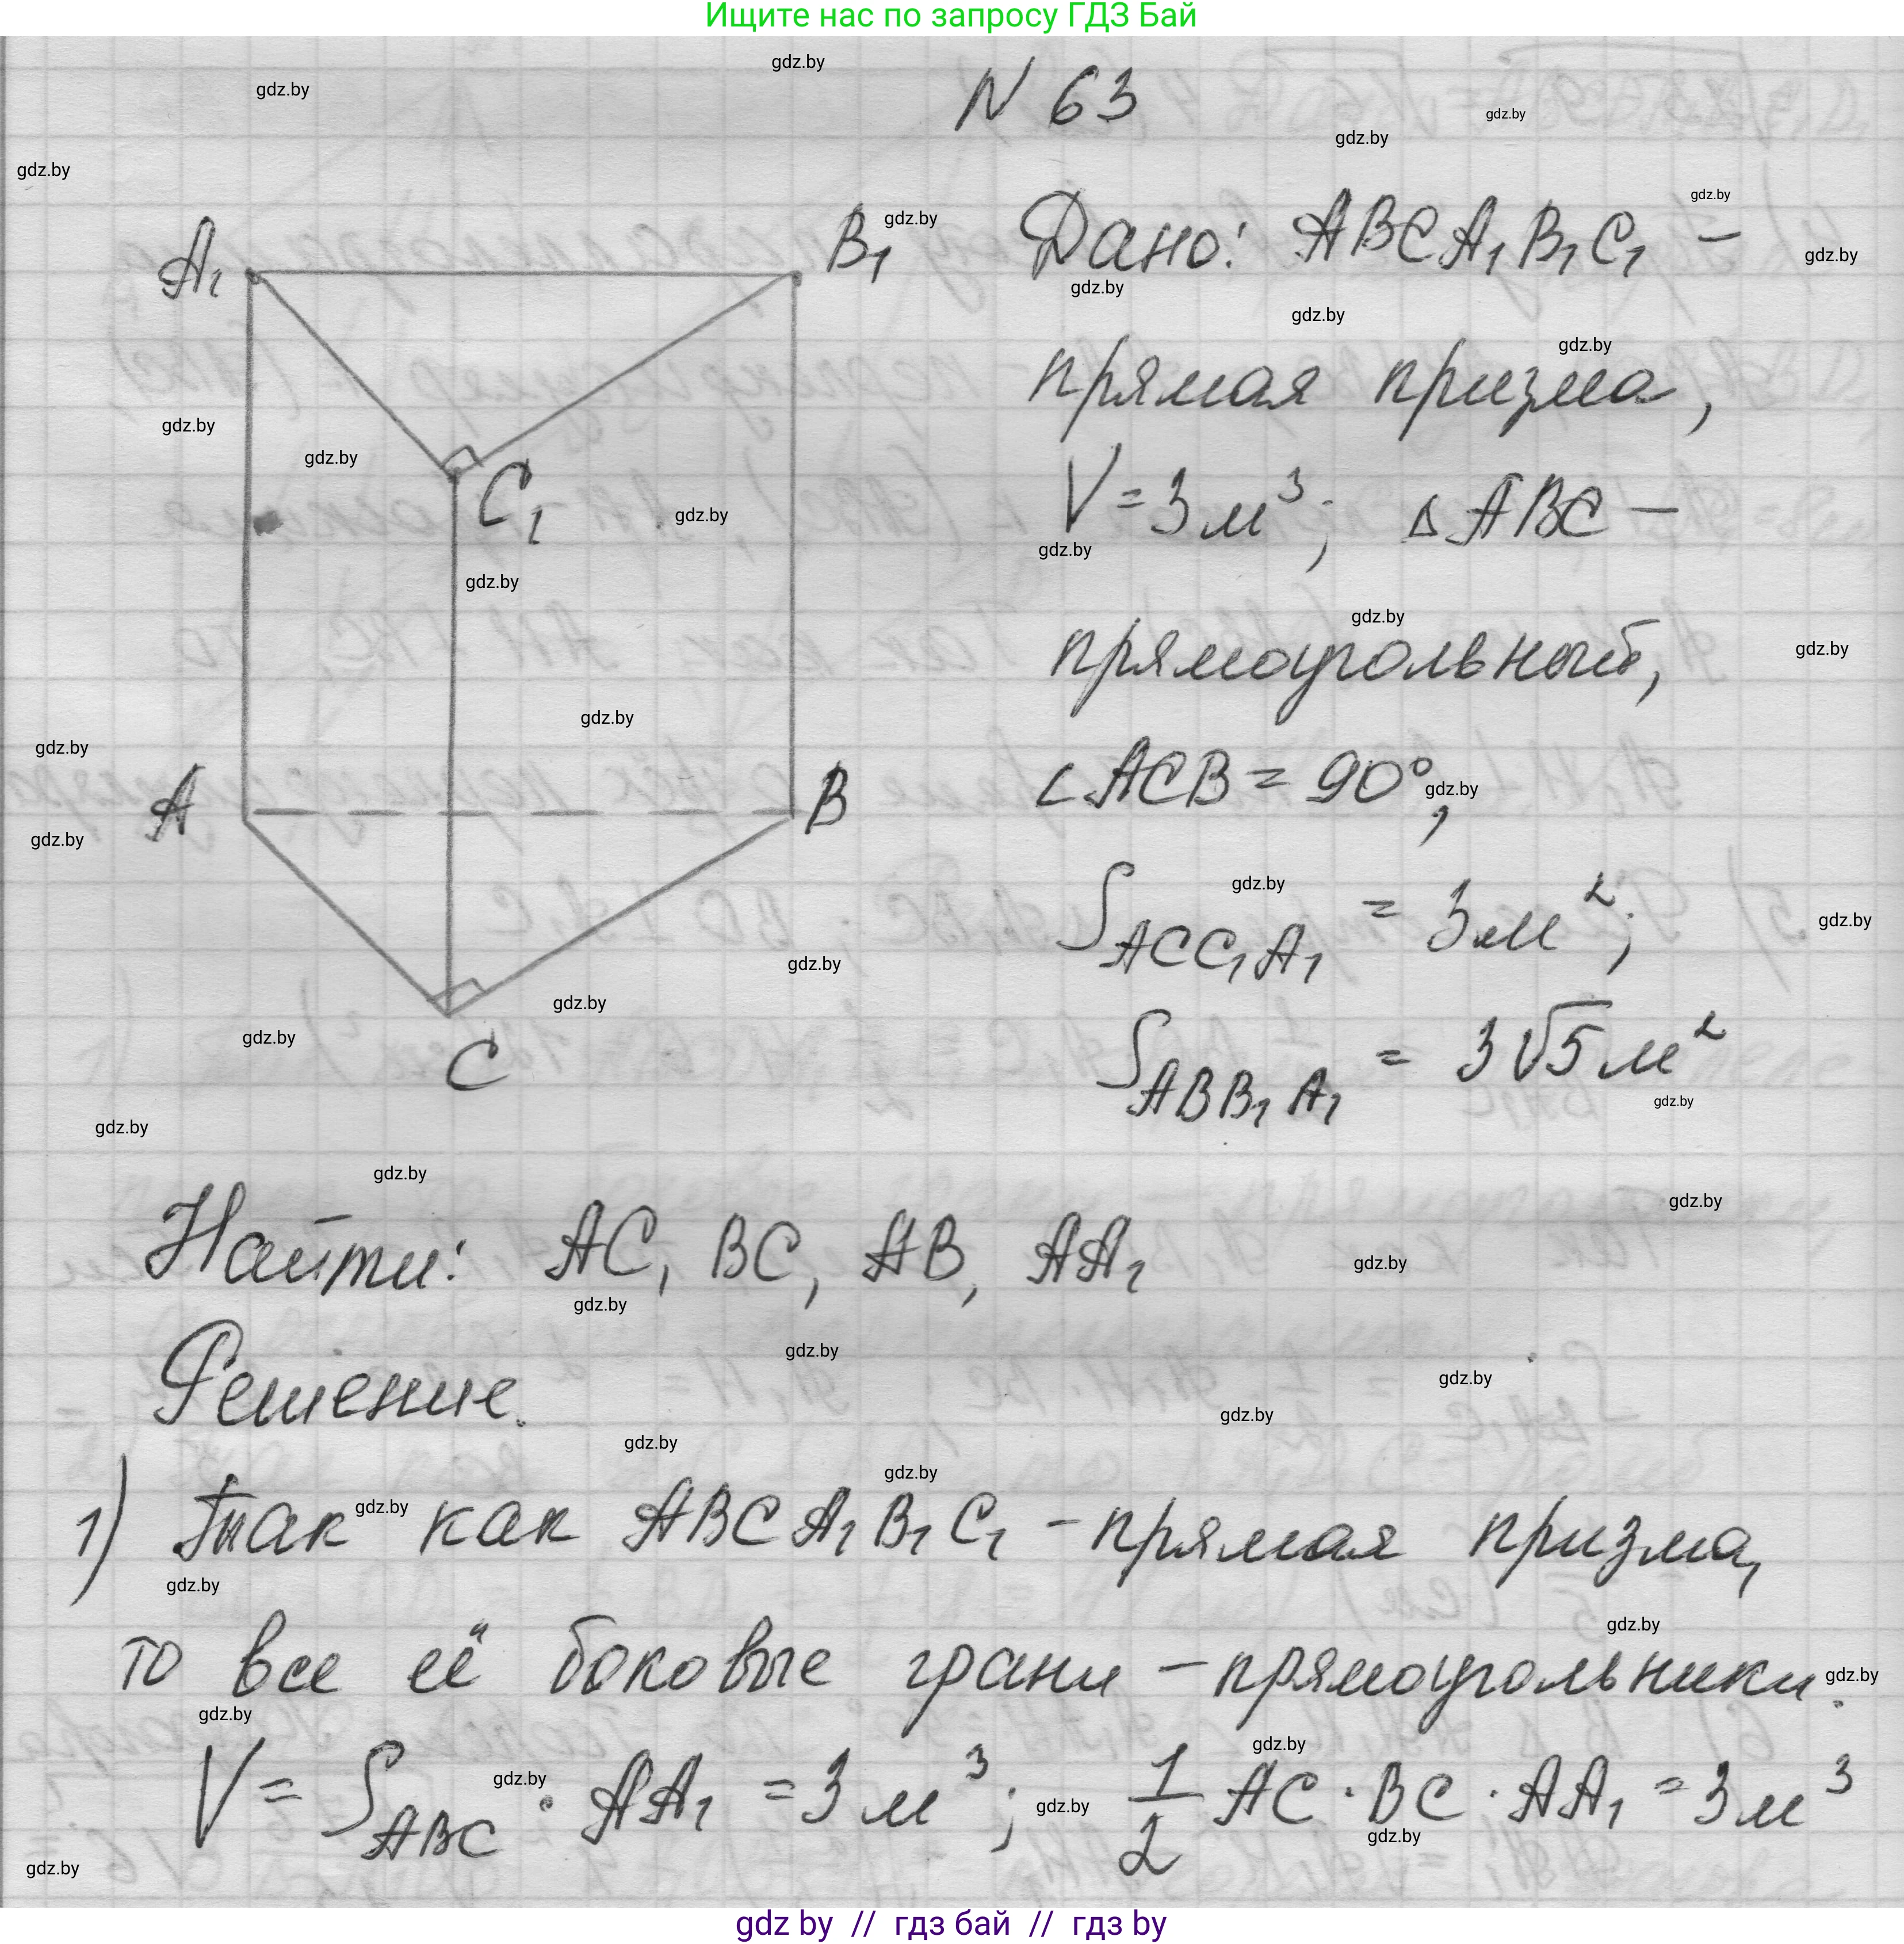 Ищите нас по запросу ГДЗ Бай
N 63
Дано: ABCA₁B₁C₁ –
прямая призма,
V = 3 м³; △ABC –
прямоугольный,
∠ACB = 90°,
S_ACC₁A₁ = 3 м²;
S_ABB₁A₁ = 3√5 м²
A₁
B₁
C₁
A
B
C
Найти: AC, BC, AB, AA₁
Решение.
1) Так как ABCA₁B₁C₁ – прямая призма,
то все её боковые грани – прямоугольники.
V = S_ABC · AA₁ = 3 м³; 1/2 AC · BC · AA₁ = 3 м³
gdz by // гдз бай // гдз by